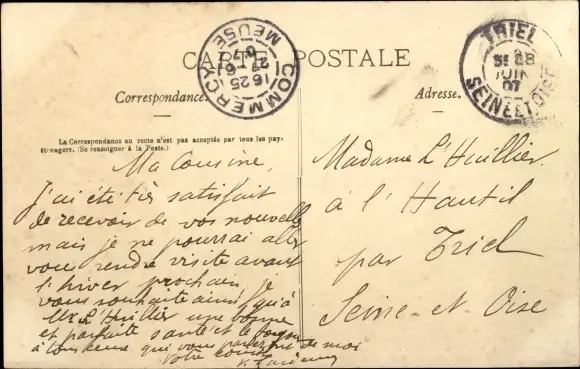 CARTE POSTALE
COMMERCY
MEUSE
16 25
27 6
07
TRIEL
28
JUIN
07
SEINE ET OISE
Correspondance.
Adresse.
La Correspondance au recto n'est pas acceptée par tous les pays
étrangers. (Se renseigner à la Poste.)
Ma Cousine,
J'ai été très satisfait
de recevoir de vos nouvelles
mais je ne pourrai aller
vous rendre visite avant
l'hiver prochain, je
vous souhaite ainsi qu'à
Mr L'Huillier une bonne
et parfaite santé et le
à tous ceux qui vous de moi
Votre cousin
Madame L'Huillier
à l'Hautil
par Triel
Seine-et-Oise